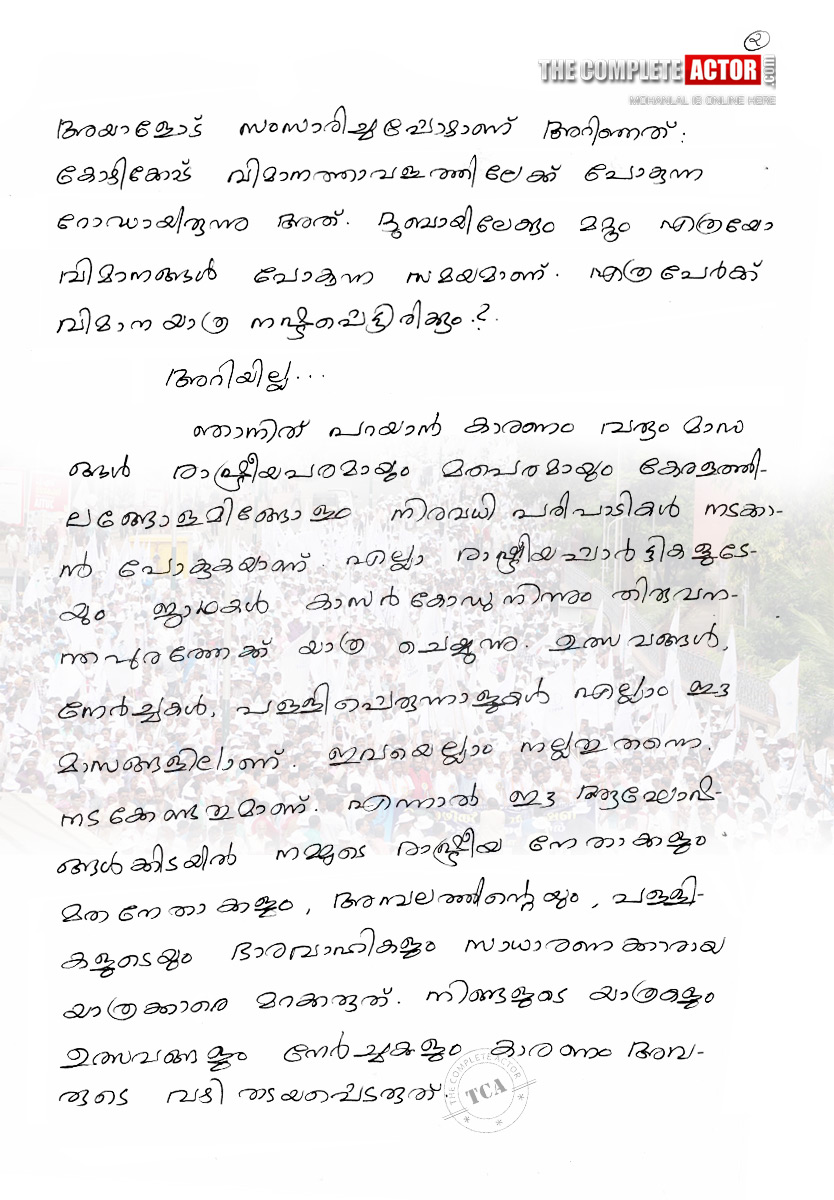 ൨
THE COMPLETE ACTOR .com
MOHANLAL IS ONLINE HERE
അയാളോട് സംസാരിച്ചപ്പോഴാണ് അറിഞ്ഞത്:
കോഴിക്കോട് വിമാനത്താവളത്തിലേക്ക് പോകുന്ന
റോഡായിരുന്നു അത്. ദുബായിലേക്കും മറ്റും എത്രയോ
വിമാനങ്ങൾ പോകുന്ന സമയമാണ്. എത്രപേർക്ക്
വിമാന യാത്ര നഷ്ടപ്പെട്ടിരിക്കും.?.
അറിയില്ല...
ഞാനിത് പറയാൻ കാരണം വരും മാസ
ങ്ങൾ രാഷ്ട്രീയപരമായും മതപരമായും കേരളത്തി-
ലങ്ങോളമിങ്ങോളം നിരവധി പരിപാടികൾ നടക്കാ-
ൻ പോകുകയാണ്. എല്ലാ രാഷ്ട്രീയപാർട്ടികളുടേ-
യും ജാഥകൾ കാസർകോഡുനിന്നും തിരുവന-
ന്തപുരത്തേക്ക് യാത്ര ചെയ്യുന്നു. ഉത്സവങ്ങൾ,
നേർച്ചകൾ, പള്ളിപ്പെരുന്നാളുകൾ എല്ലാം ഈ
മാസങ്ങളിലാണ്. ഇവയെല്ലാം നല്ലതുതന്നെ.
നടക്കേണ്ടതുമാണ്. എന്നാൽ ഈ ആഘോഷ-
ങ്ങൾക്കിടയിൽ നമ്മുടെ രാഷ്ട്രീയ നേതാക്കളും
മതനേതാക്കളും, അമ്പലത്തിന്റെയും, പള്ളി-
കളുടെയും ഭാരവാഹികളും സാധാരണക്കാരായ
യാത്രക്കാരെ മറക്കരുത്. നിങ്ങളുടെ യാത്രകളും
ഉത്സവങ്ങളും നേർച്ചകളും കാരണം അവ-
രുടെ വഴി തടയപ്പെടരുത്.
THE COMPLETE ACTOR
TCA